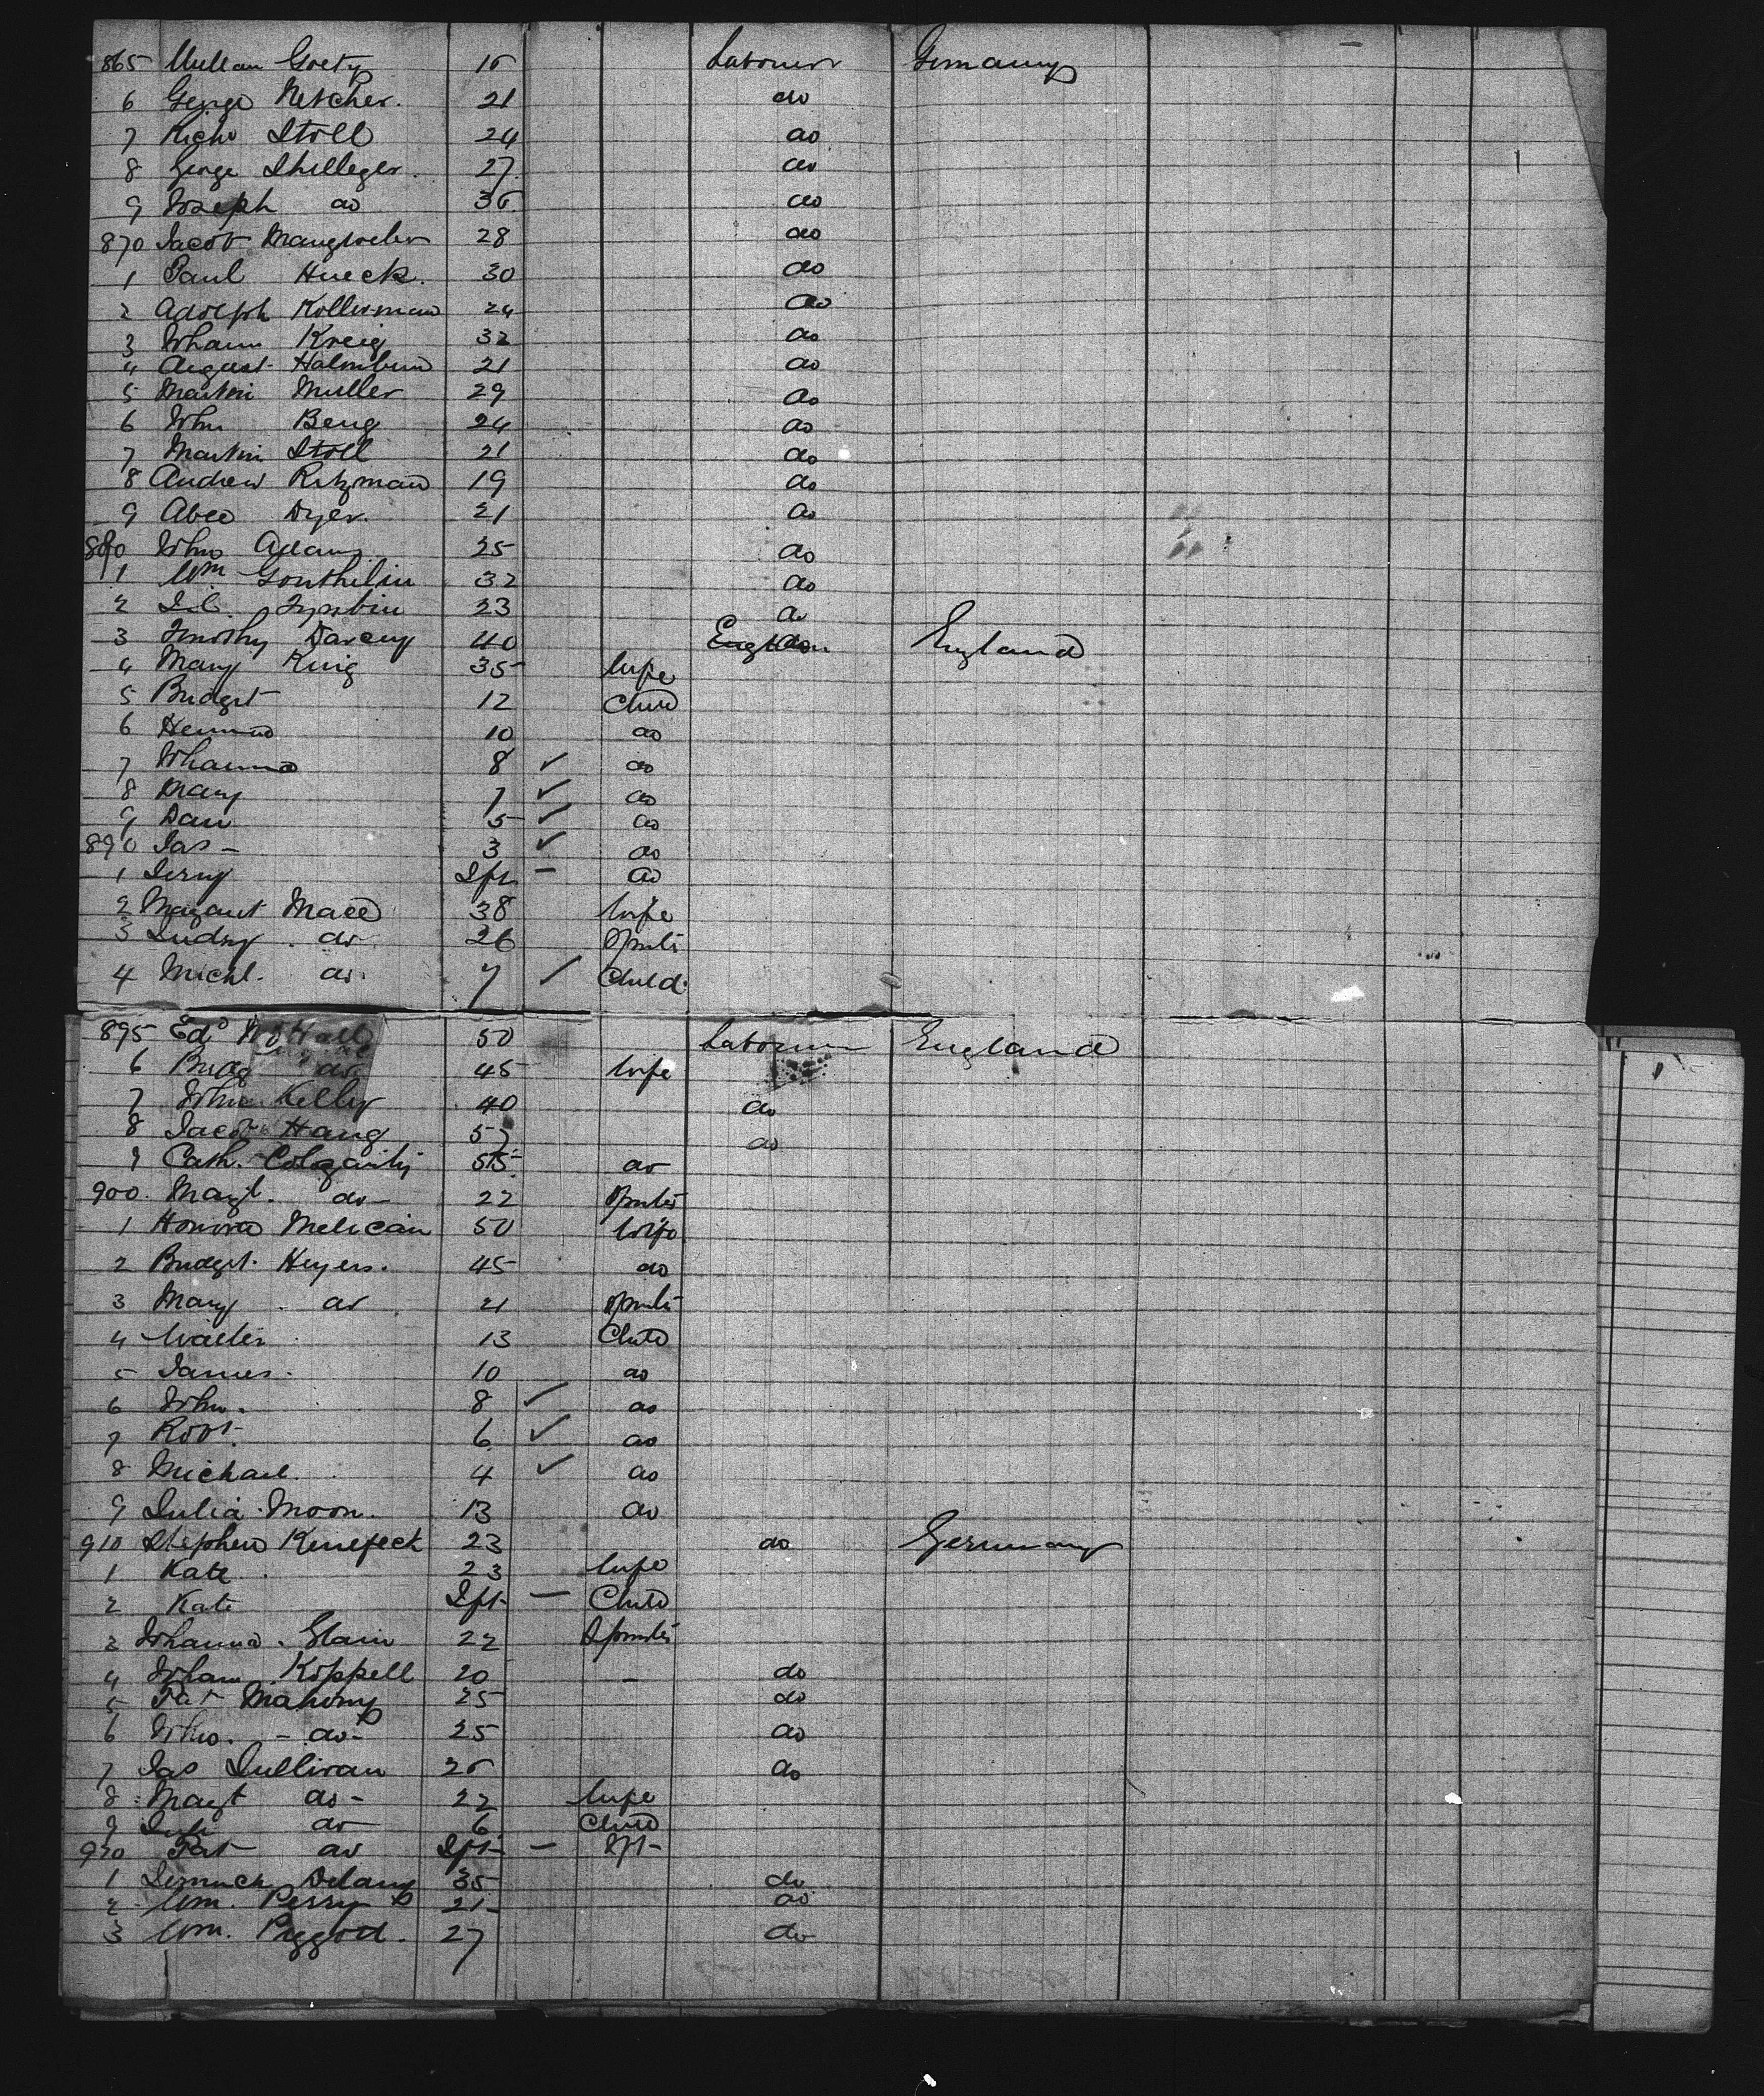 865 Goety 15 Labourer Germany
6 George Netscher. 21 do
7 Richd Stoll 24 do
8 George Shilleger. 27 do
9 Joseph do 36 do
870 Jacob 28 do
1 Paul Hueck. 30 do
2 Adolph Kollerman 24 do
3 Johann Kreig 32 do
4 August 21 do
5 Martin Muller 29 do
6 John Beng 24 do
7 Martin Stoll 21 do
8 Andrew Ritzman 19 do
9 Dyer. 21 do
880 John Adams 25 do
1 Wm 32 do
2 23 do
3 Timothy Darcey 40 do England
4 Mary King 35 Wife
5 Bridget 12 Child
6 10 do
7 Johanna 8 ✓ do
8 Mary 7 ✓ do
9 Dan 5 ✓ do
890 Jas - 3 ✓ do
1 Jerry Ift - do
2 Margaret Mace 38 Wife
3 do 26 Spinster
4 Michl. do. 7 ✓ Child.
895 Edd 50 Labourer England
6 Bridg do 45 Wife
7 John Kelly 40 do
8 Jacob Haug 57 do
9 Cath. 55 do
900. Margt. do - 22 Spinster
1 Honora Melican 50 Wife
2 Bridget. Heyers. 45 do
3 Mary. do 21 Spinster
4 Walter 13 Child
5 James. 10 do
6 John. 8 ✓ do
7 Robt. 6 ✓ do
8 Michael. 4 ✓ do
9 Julia Moon. 13 do
910 Stephen Kenefeck 23 do Germany
1 Kate 23 Wife
2 Kate Ift - Child
3 Johanna. Glain 22 Spinster
4 Johan Koppell 20 - do
5 Pat Mahony 25 do
6 Jho. - do - 25 do
7 Jas Sullivan 25 do
8 Margt do - 22 Wife
9 do 6 Child
920 Pat do Ift - Ift -
1 Delany 35 do
2 Wm. Perry 21 do
3 Wm. Piggod. 27 do